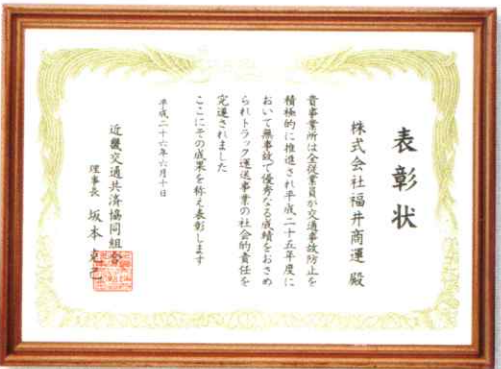 表彰状
株式会社福井商運 殿
貴事業所は全従業員が交通事故防止を
積極的に推進され平成二十五年度に
おいて無事故で優秀なる成績をおさめ
られトラック運送事業の社会的責任を
完遂されました
ここにその成果を称え表彰します
平成二十六年六月十日
近畿交通共済協同組合
理事長 坂本克己